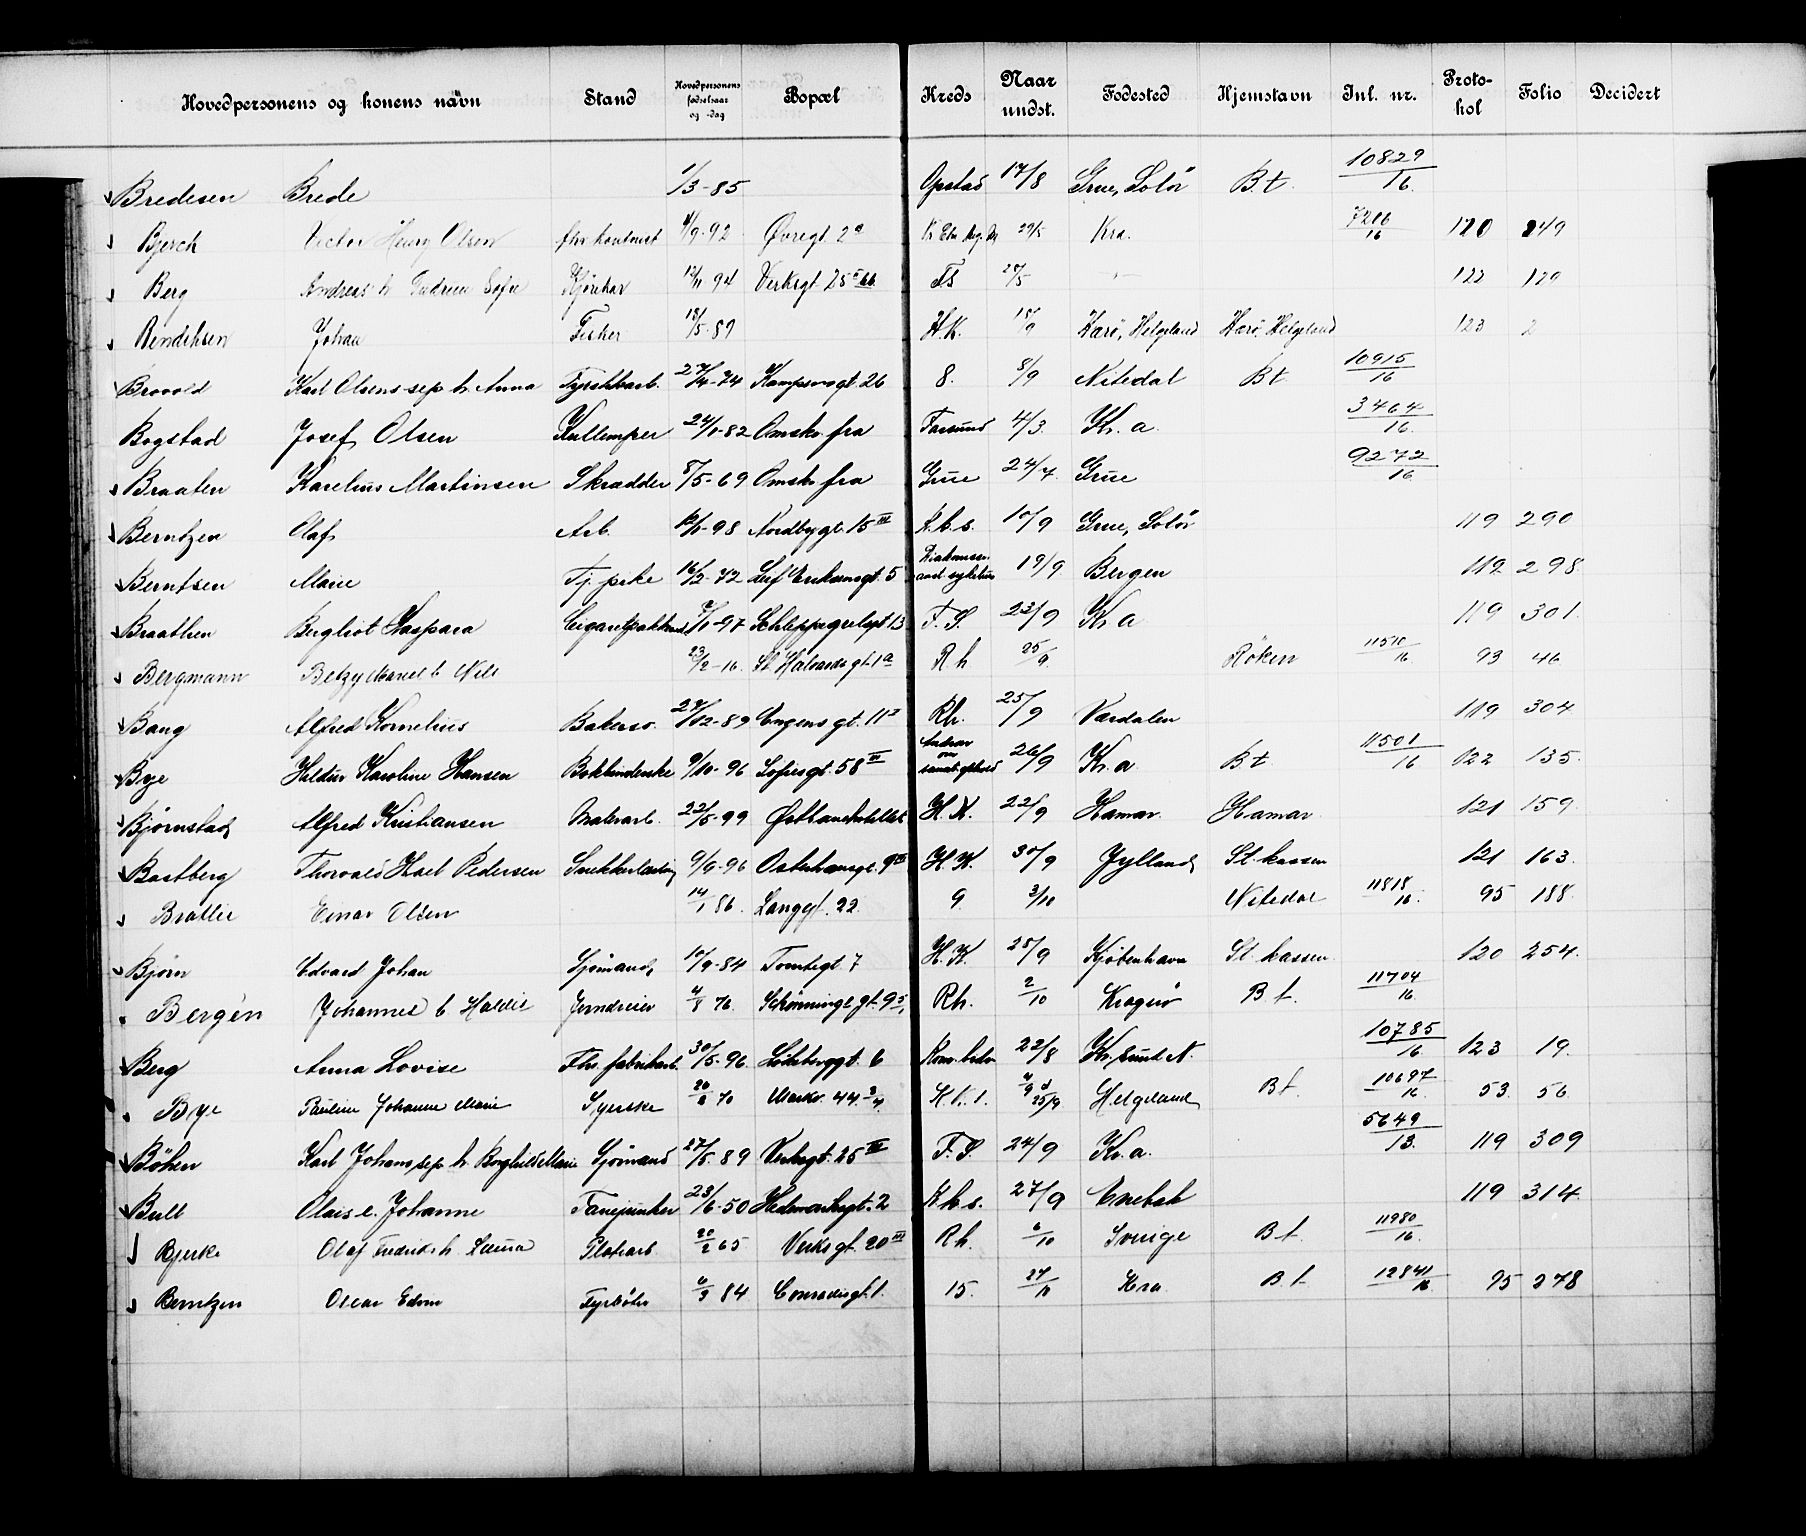 Hovedpersonens og konens navn Stand Hovedpersonens fødselsaar og -dag Bopæl Kreds Naar undst. Fødested Hjemstavn Inl. nr. Proto-kol Folio Decidert
Bredesen Brede 1/3-85 Opstad 17/8 Grue, Solør B t. 10829/16.
Bjerch Victor Henry Olsen 4/9-92 Øvregt. 2a 29/5 Kra. 7286/16 120 249
Berg Andreas h. Gudrun Sofie Kjørekar 12/11-94 Verksgt 25 F S 27/5 122 129
Bendiksen Johan Fisker 18/5-89 H.K. 15/9 Herø, Helgeland Herø, Helgeland 123 2
Brovold Karl Olsens sep. h. Anna Fyrstikarb. 27/4-74 Kampensgt. 26 8. 8/9 Nitedal B t 10915/16
Bogstad Josef Olsen Kullemper 24/1-82 Omskr. fra Farsund 4/3. Kr. a. 3464/16.
Braaten Karelius Martinsen Skrædder 8/5-69 Omskr. fra Grue 24/7. Grue 9272/16
Berntzen Olaf Arb. 12/11-98 Nordbygt. 15 III K.b.s. 10/9 Grue, Solør 119 290
Berntsen Marie Tj. pike 16/2-72 Leif Eriksensgt. 5 19/9 Bergen 119 298.
Braathen Bergliot Kaspara Cigaretpakkerske 7/1-97 Schleppegrellsgt 13 F. S. 23/9 Kr. a 119 301.
Bergmann Betzy Marie b Nils 23/2-16. St Halvards gt. 1a R h 25/9. Røken 11510/16. 93 46
Bang Alfred Kornelius Bakersv. 27/12-89 Engens gt. 11 Rh. 25/9 Værdalen 119 304
Bye Hildur Karoline Hansen Bokbinderske 9/10-96 Sofiesgt. 58 III 26/9 Kr. a B t 11501/16 122 135.
Bjørnstad Alfred Kristiansen Malerarb. 22/5-99 Østbanehotellet H. K. 22/9 Hamar. Hamar 121 159.
Bastberg Thorvald Karl Pedersen Snekkerlærling 9/9-96 Osterhausgt. 9 III H. K. 30/9 Jylland St. kassen 121 163.
Bratlie Einar Olsen 14/1 86. Langgt. 22. 9. 3/10 Nitedal 11818/16. 95 188.
Bjørn Edvard Johan Sjømand, 10/9-84 Tomtegt. 7 H. K. 25/9 Kjøbenhavn St. kassen. 120 254.
Bergén Johannes h Haldis Jerndreier 4/8 76. Schønnings gt. 9 Rh. 2/10 Kragerø B t. 11704/16.
Berg Anna Lovise Fhv. fabrikarb. 30/5-96. Lakkegt. 6 22/8 Kr. sund N. 10785/16 123 19.
Bye Pauline Johanne Marie Syerske 20/8 70 Markv. 44. K. V. 1. 4/9 25/9 Helgeland B t. 10697/16. 53. 56.
Böhen Karl Johans sep. h. Borghild Marie Sjømand 27/5. 89 Verksgt. 25 III F. S. 24/9 Kr. a. 5649/13. 119 309
Bull Olais e. Johanne 23/6-50 Hedemarksgt. 2 K b s. 27/9 Enebak 119 314.
Bjerke Olaf Fredrik h. Laura Platearb 20/2 65 Verksgt. 20 III R h. 6/10 Sverige B t. 11980/16.
Berntzen Oscar Edvin Fyrbøter 6/3 84 Conradisgt. 1. 15. 27/11 Kra B t. 12841/16. 95 278